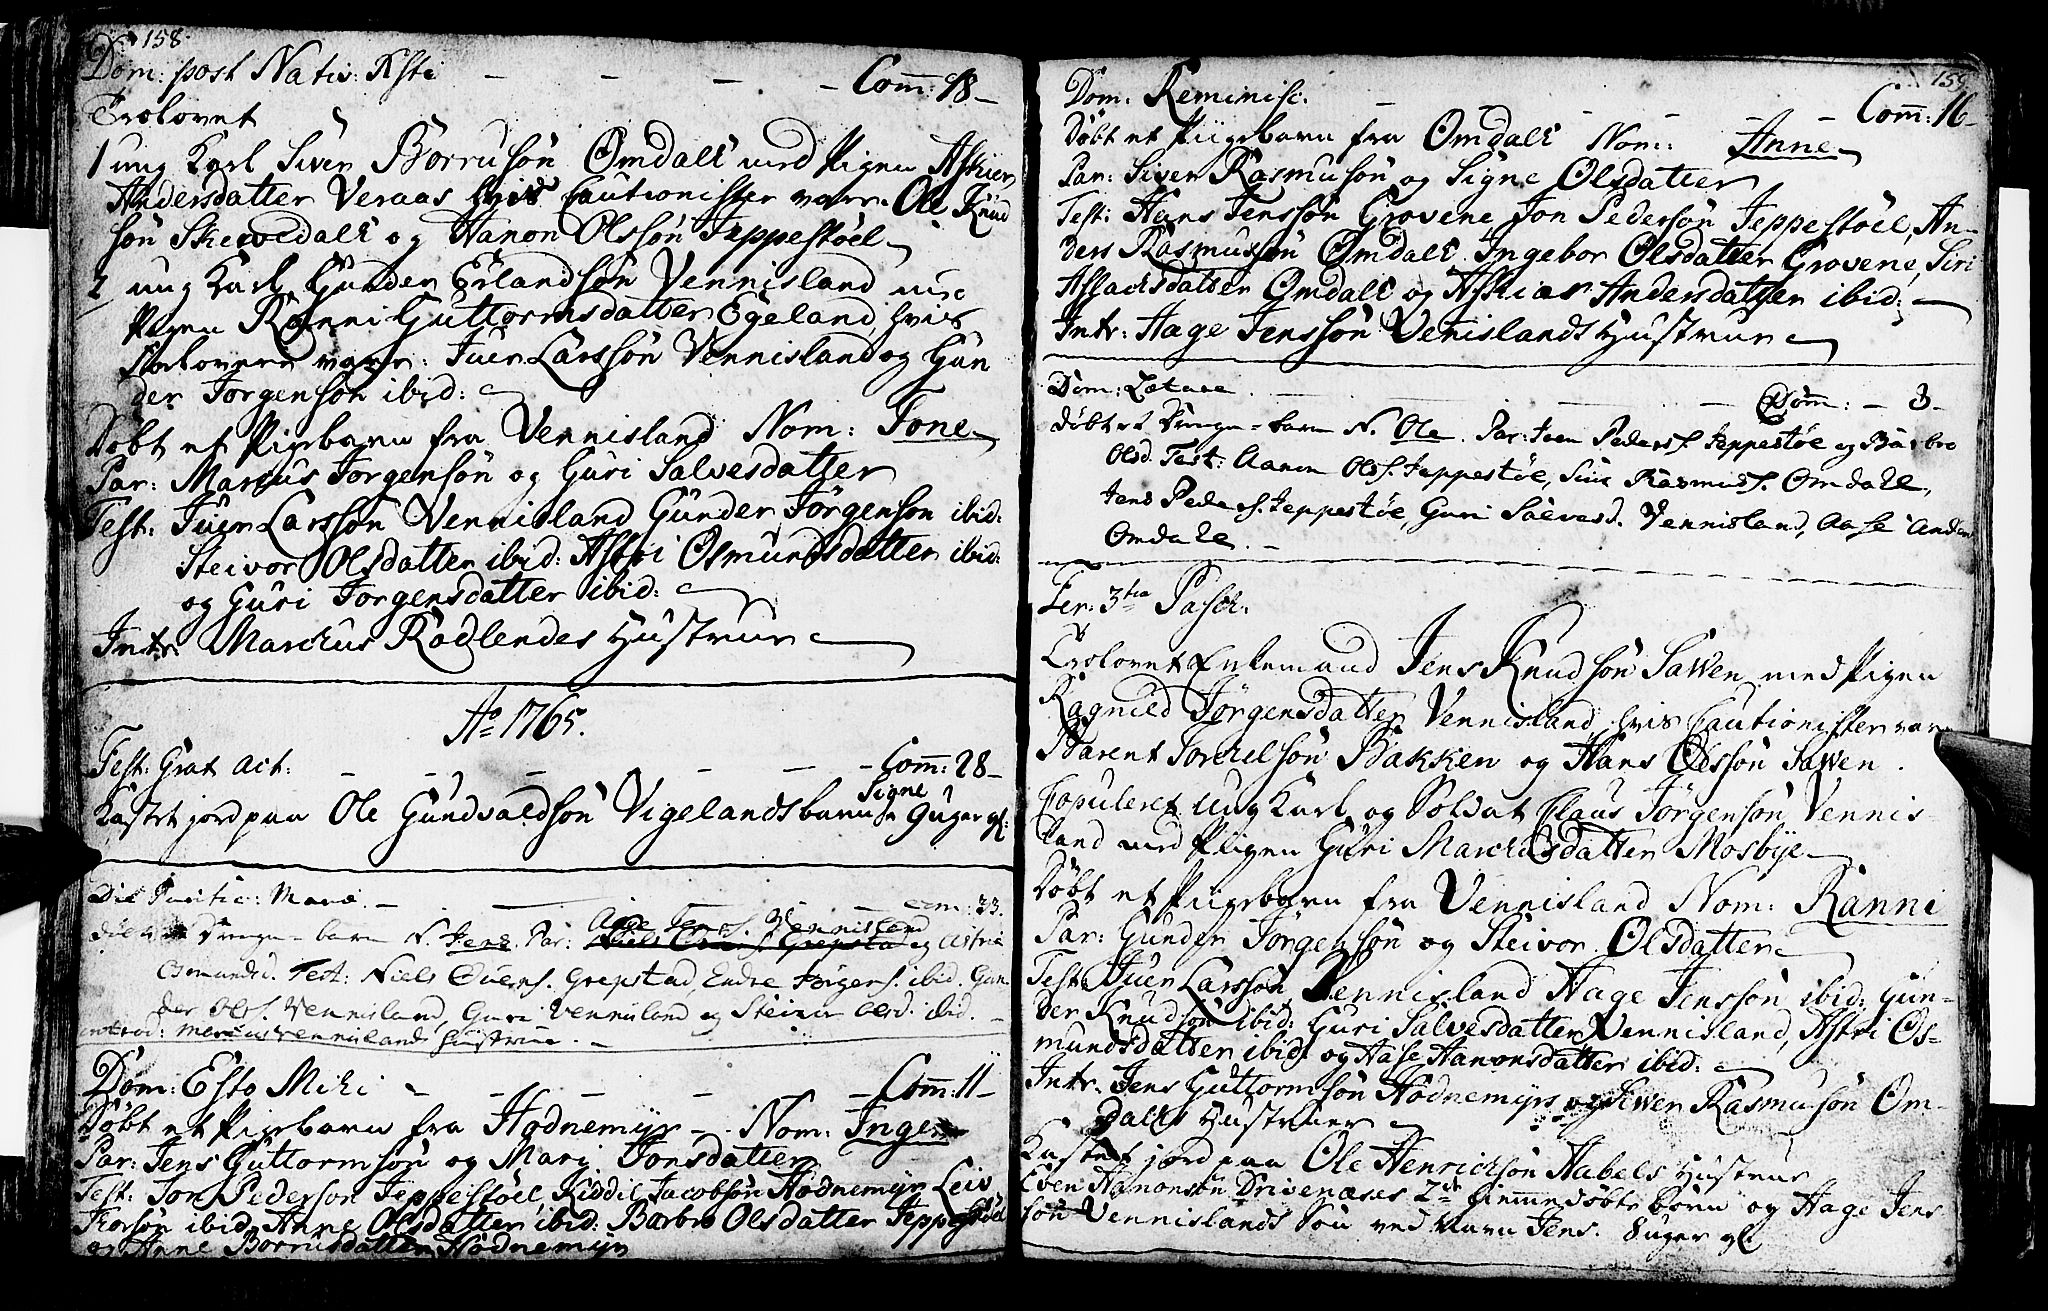 158.
Dom: post Nativ: Xsti - - - - Com: 18 -
Trolovet
1 ung Karl Siver Borrusøn Omdals med Pigen Askier
Andersdatter Veraas hvis Cautionister vare. Ole Knud
søn Skievedals og Hanon Olssøn Jeppestöel
2 ung Karl Gunder Erlandsøn Vennisland med
Pigen Ranni Guttormsdatter Egeland, hvis
Forlovere vare: Juer Larssøn Vennisland og Gun
der Jørgensøn ibid:
Døbt et Pigebarn fra Vennisland Nom: Tone
Par: Marcus Jørgensøn og Guri Salvesdatter
Test: Juer Larssøn Vennisland Gunder Jørgensøn ibid:
Steivor Olsdatter ibid: Astri Osmundsdatter ibid:
og Guri Jørgensdatter ibid:
Intr: Marchus Rodlendes Hustrue
Ao 1765.
Fest: Grat Act: - - - - Com: 28 -
Signe
Kastet jord paa Ole Gundvaldsøn Vigelands barn 9 uger gl:
Die Purific: Mariæ. - - - com: 33.
Aage Jens. Vennisland
Drenge-barn N. Jens. Par: og Astrie
Osmundsd. Test: Niels Ouens. Grepstad, Endre Jørgens. ibid. Gun
der Olss. Vennisland, Guri Vennisland og Steivor Olsd. ibid.
introd: Marcus Vennislands Hustrue. -
Dom: Esto Mihi - - - - Com: 11 -
Døbt et Pigebarn fra Hodnemyr - Nom: Inge
Par: Jens Guttormsøn og Mari Jonsdatter
Test: Jon Pedersøn Jeppestöel, Kiddil Jacobsøn Hodnemyr Leiv
Torsøn ibid: Anne Olsdatter ibid: Barbro Olsdatter Jeppestöel
og Anne Borrusdatter Hodnemyr
159
Dom: Reminisc. - - - - Com: 16 -
Døbt et Pigebarn fra Omdals Nom: Anne
Par: Siver Rasmusøn og Signe Olsdatter
Test: Hans Jenssøn Grovene Jon Pedersøn Jeppestöel, An-
ders Rasmusøn Omdals. Ingebor Olsdatter Grovene, Siri
Aslachsdatter Omdals og Askier Andersdatter ibid:
Intr: Hage Jenssøn Venislands Hustrue
Dom: Lætare - - - Com: - 3 -
døbt et Drenge-barn N. Ole. Par: Joen Peders. Jeppestøe og Barbro
Olsd. Test: Aanon Olss. Jeppestøe, Siur Rasmuss. Omdale,
Jens Peders. Jeppestøe, Guri Salvesd. Vennisland, Aase Anders
Omdale. -
Fer: 3tia Pasch:
Trolovet Enkemand Jens Knudsøn Sawen med Pigen
Ragnild Jørgensdatter Vennisland, hvis Cautionister vare
Barent Torchelsøn Bakken og Hans Olssøn Sawen.
Copuleret ung Karl og Soldat Claus Jørgensøn Vennis-
land med Pigen Guri Marchusdatter Mosbye
Døbt et Pigebarn fra Vennisland Nom: Ranni
Par: Gunder Jørgensøn og Steivor Olsdatter
Test: Juer Larssøn Vennisland Hage Jenssøn ibid: Gun-
der Knudsøn ibid: Guri Salvesdatter Vennisland, Astri Os-
mundsdatter ibid: og Aase Hanonsdatter ibid:
Intr: Jens Guttormsøn Hodnemyrs og Siwer Rasmusøn Om-
dals Hustruer
Kastet jord paa Ole Henrichsøn Aabels Hustrue
Even Hanonsøn Drivenæses 2de hiemmedøbte børn og Hage Jens
søn Vennislands Søn ved Navn Jens. 8 uger gl.